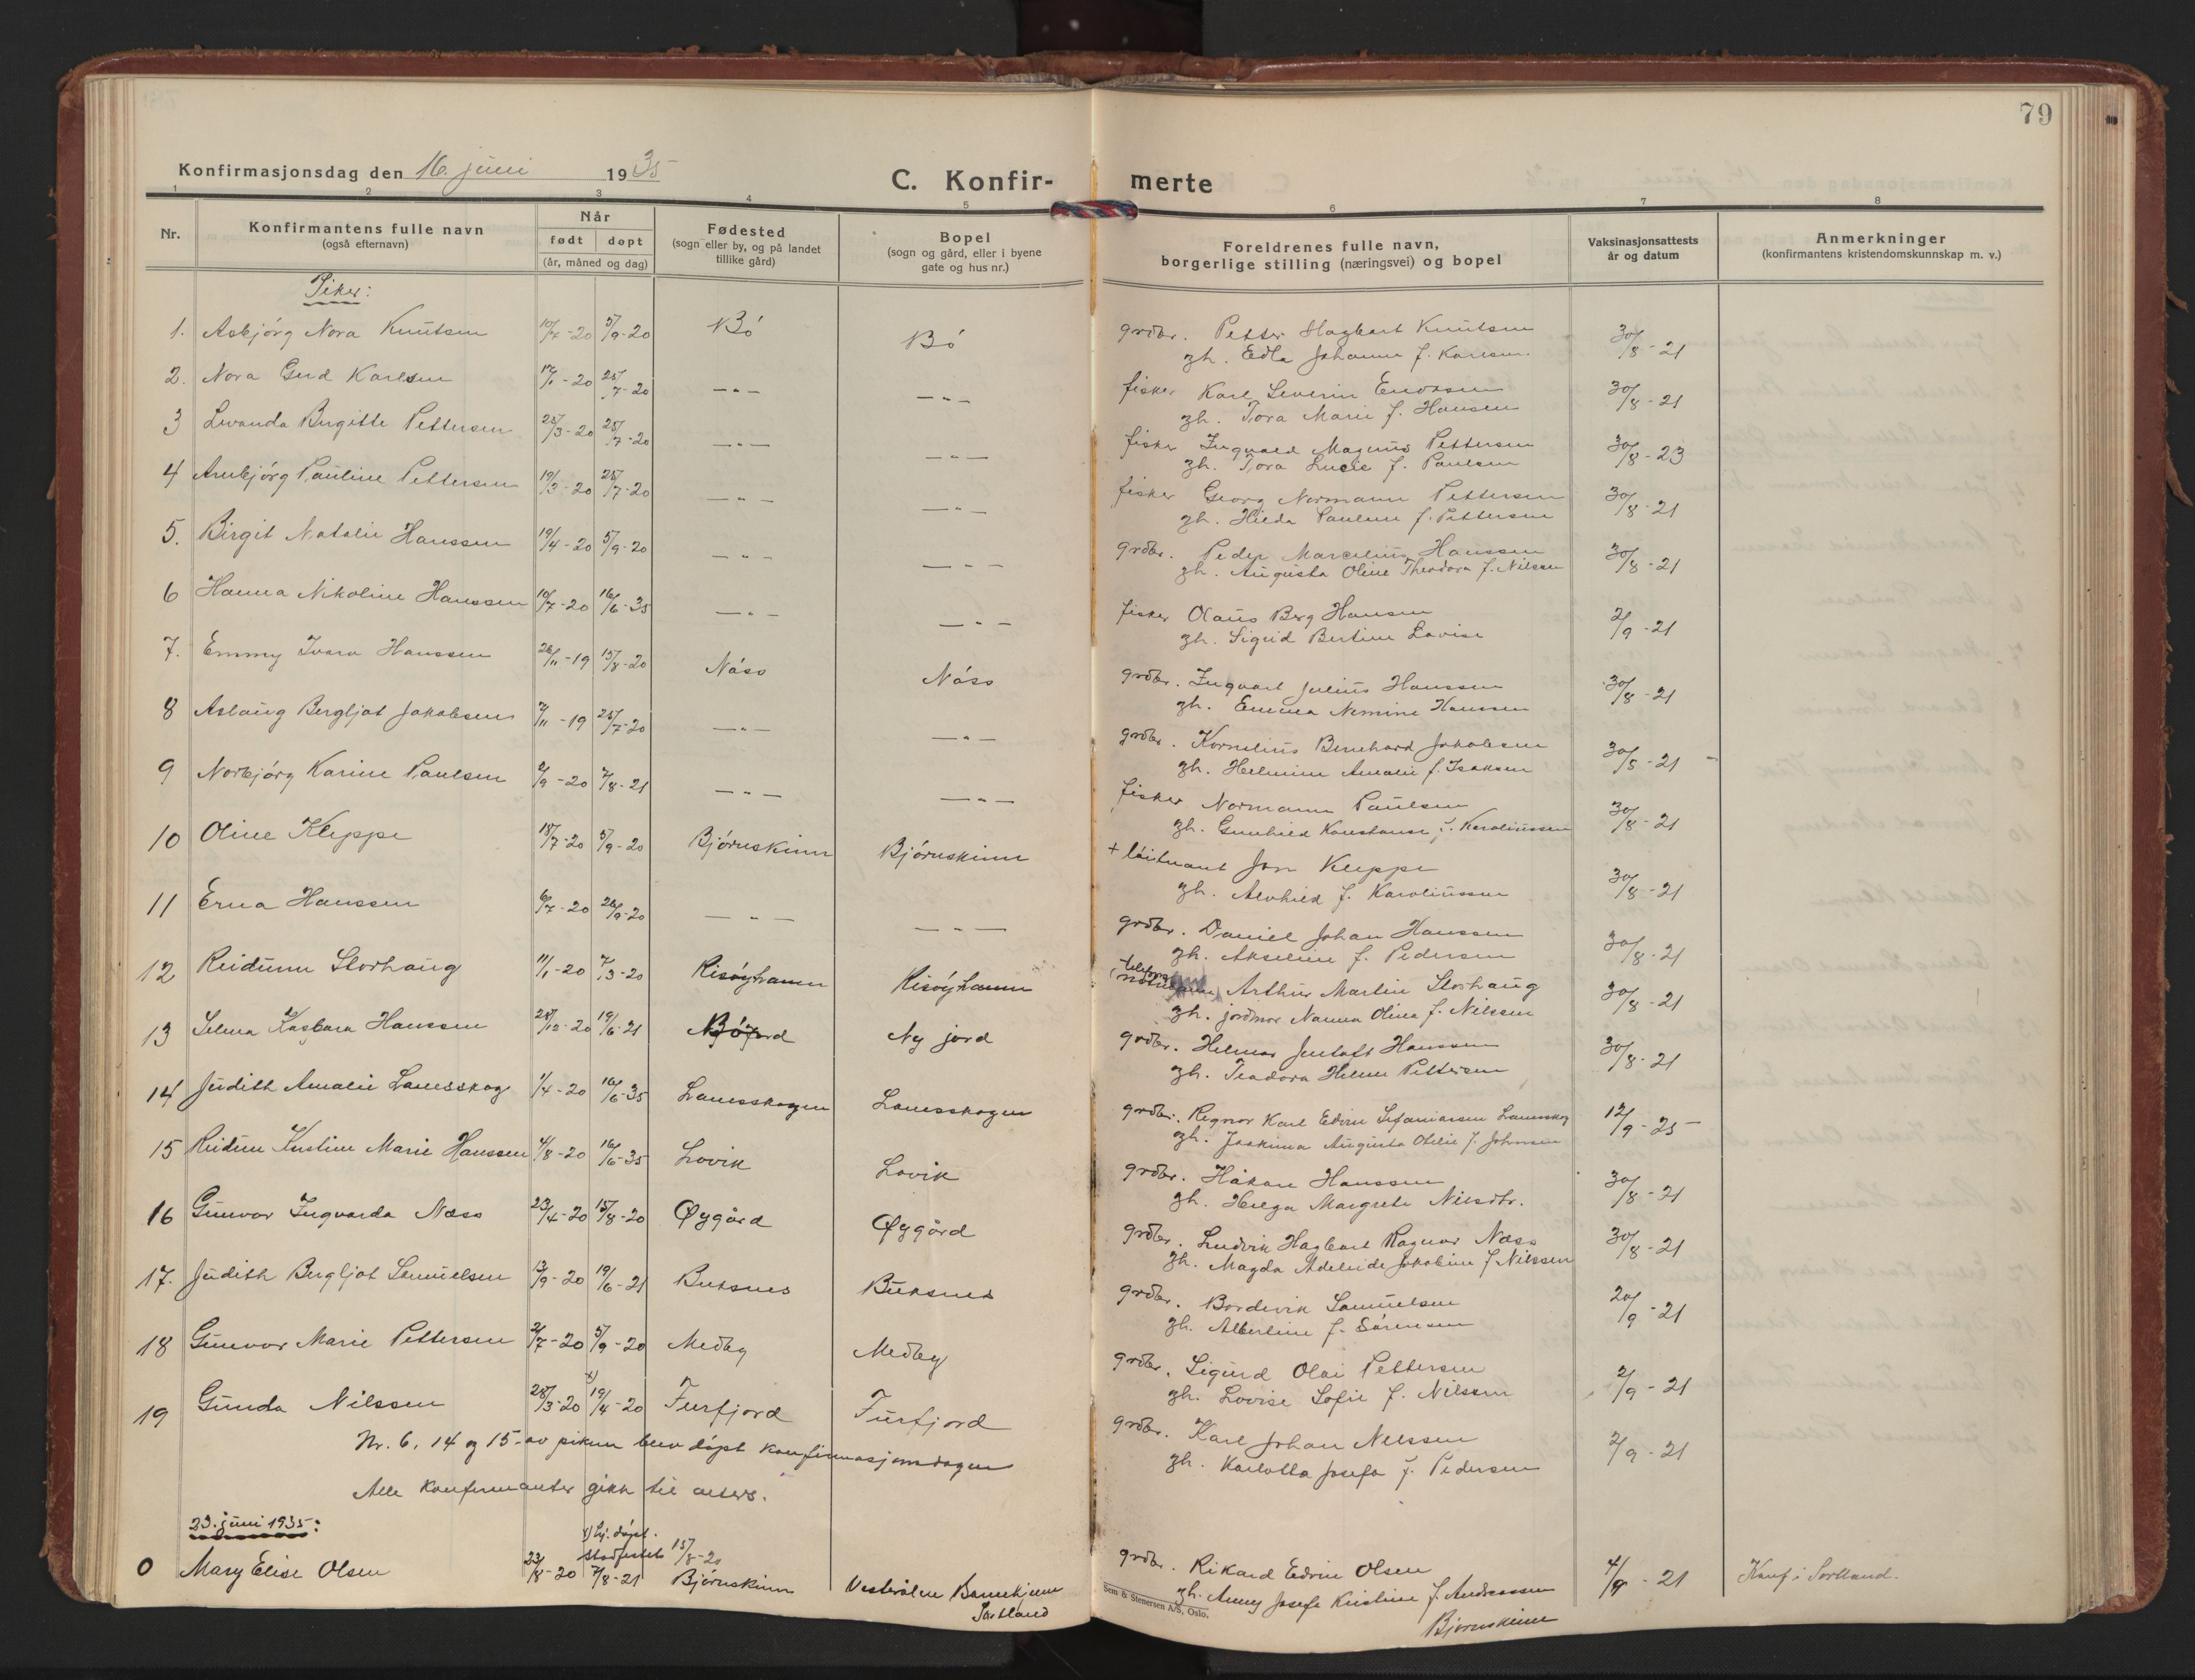 79
Konfirmasjonsdag den 16. juni 1935
C. Konfir- merte
1 2 3 4 5 6 7 8
Nr.
Konfirmantens fulle navn
(også efternavn)
Når
født døpt
(år, måned og dag)
Fødested
(sogn eller by, og på landet
tillike gård)
Bopel
(sogn og gård, eller i byene
gate og hus nr.)
Foreldrenes fulle navn,
borgerlige stilling (næringsvei) og bopel
Vaksinasjonsattests
år og datum
Anmerkninger
(konfirmantens kristendomskunnskap m. v.)
Piker:
1. Asbjórg Nora Knutsen 10/7-20 5/9-20 Bó Bó grdbr. Petter Hagbart Knutsen 30/8-21
gh. Edla Johanne f. Karlsen
2. Nora Gerd Karlsen 17/1-20 25/7-20 —"— —"— fisker Karl Severin Enoksen 30/8-21
gh. Tora Marie f. Hansen
3 Lovanda Birgitte Pettersen 25/3-20 25/7-20 —"— —"— fisker Ingvald Magnus Pettersen 30/8-23
gh. Tora Lucie f. Paulsen
4 Arnbjórg Pauline Pettersen 19/3-20 25/7-20 —"— —"— fisker Georg Normann Pettersen 30/8-21
gh. Hilda Pauline f. Pettersen
5. Birgit Natalie Hanssen 19/4-20 5/9-20 —"— —"— grdbr. Peder Marcelius Hanssen 30/8-21
gh. Augusta Oline Theodora f. Nilssen
6 Hanna Nikoline Hanssen 10/7-20 16/6-35 —"— —"— fisker Olaus Berg Hansen 2/9-21
gh. Sigrid Bertine Lovise
7. Emmy Ivara Hanssen 26/11-19 15/8-20 Nóss Nóss grdbr. Ingvart Julius Hanssen 30/8-21
gh. Emma Nimine Hanssen
8 Aslaug Bergljot Jakobsen 7/11-19 25/7-20 —"— —"— grdbr. Kornelius Bernhard Jakobsen 30/5-21
gh. Helmine Amalie f. Isaksen
9 Norbjórg Karine Paulsen 2/9-20 7/8-21 —"— —"— fisker Normann Paulsen 30/8-21
gh. Gunhild Konstanse f. Karoliussen
10 Oline Kleppe 18/7-20 5/9-20 Bjórnskinn Bjórnskinn + lóitnant Jon Kleppe 30/8-21
gh. Alvhild f. Karoliussen
11 Erna Hanssen 6/7-20 26/9-20 —"— —"— grdbr. Daniel Johan Hanssen 30/8-21
gh. Akseline f. Pedersen
12 Reidunn Storhaug 11/1-20 7/3-20 Risóyhamn Risóyhamn Arthur Martin Storhaug 30/8-21
gh. jordmor Nanna Olina f. Nilssen
13 Selma Kasbara Hanssen 28/12-20 19/6-21 Ny jord grdbr. Helmer Gustaft Hanssen 30/8-21
gh. Teodora Helene Pettersen
14 Judith Amalie Lanesskog 1/4-20 16/6-35 Lanesskogen Lanesskogen grdbr. Regnor Karl Edvin Stefaniassen Lanesskog 12/9-25
gh. Joakima Augusta Otelie f. Johnsen
15 Reidun Kirstine Marie Hanssen 4/8-20 16/6-35 Lovik Lovik grdbr. Håkon Hanssen 30/8-21
gh. Helga Margrete Nilsdtr.
16 Gunvor Ingvarda Næss 23/4-20 15/8-20 Øygård Øygård grdbr. Ludvik Hagbart Ragnar Næss 30/8-21
gh. Magda Adeleide Jakobine f Nilssen
17. Judith Bergljot Samuelsen 13/9-20 19/6-21 Buksnes Buksnes grdbr. Bordevik Samuelsen 20/9-21
gh. Albertine f. Sórensen
18 Gunvor Marie Pettersen 2/7-20 5/9-20 Medby Medby grdbr. Sigurd Olai Pettersen 2/9-21
gh. Lovise Sofie f. Nilssen
19 Gunda Nilssen 28/3-20 x) 19/4-20 Furfjord Furfjord grdbr. Karl Johan Nilssen 2/9-21
gh. Karlotta Josefa f. Pedersen
Nr. 6, 14 og 15 av pikene blev dópt konfirmasjonsdagen
Alle konfirmanter gikk til alters.
23. juni 1935:
x) hj. dópt.
stadfestet 15/8-20
0 Mary Elise Olsen 23/8-20 7/8-21 Bjórnskinn Vesterålen Barnehjem grdbr. Rikard Edvin Olsen 4/9-21 Konf. i Sortland.
Sortland gh. Anny Josefe Kristine f. Andreassen
Bjórnskinn
Sem & Stenersen A/S, Oslo.